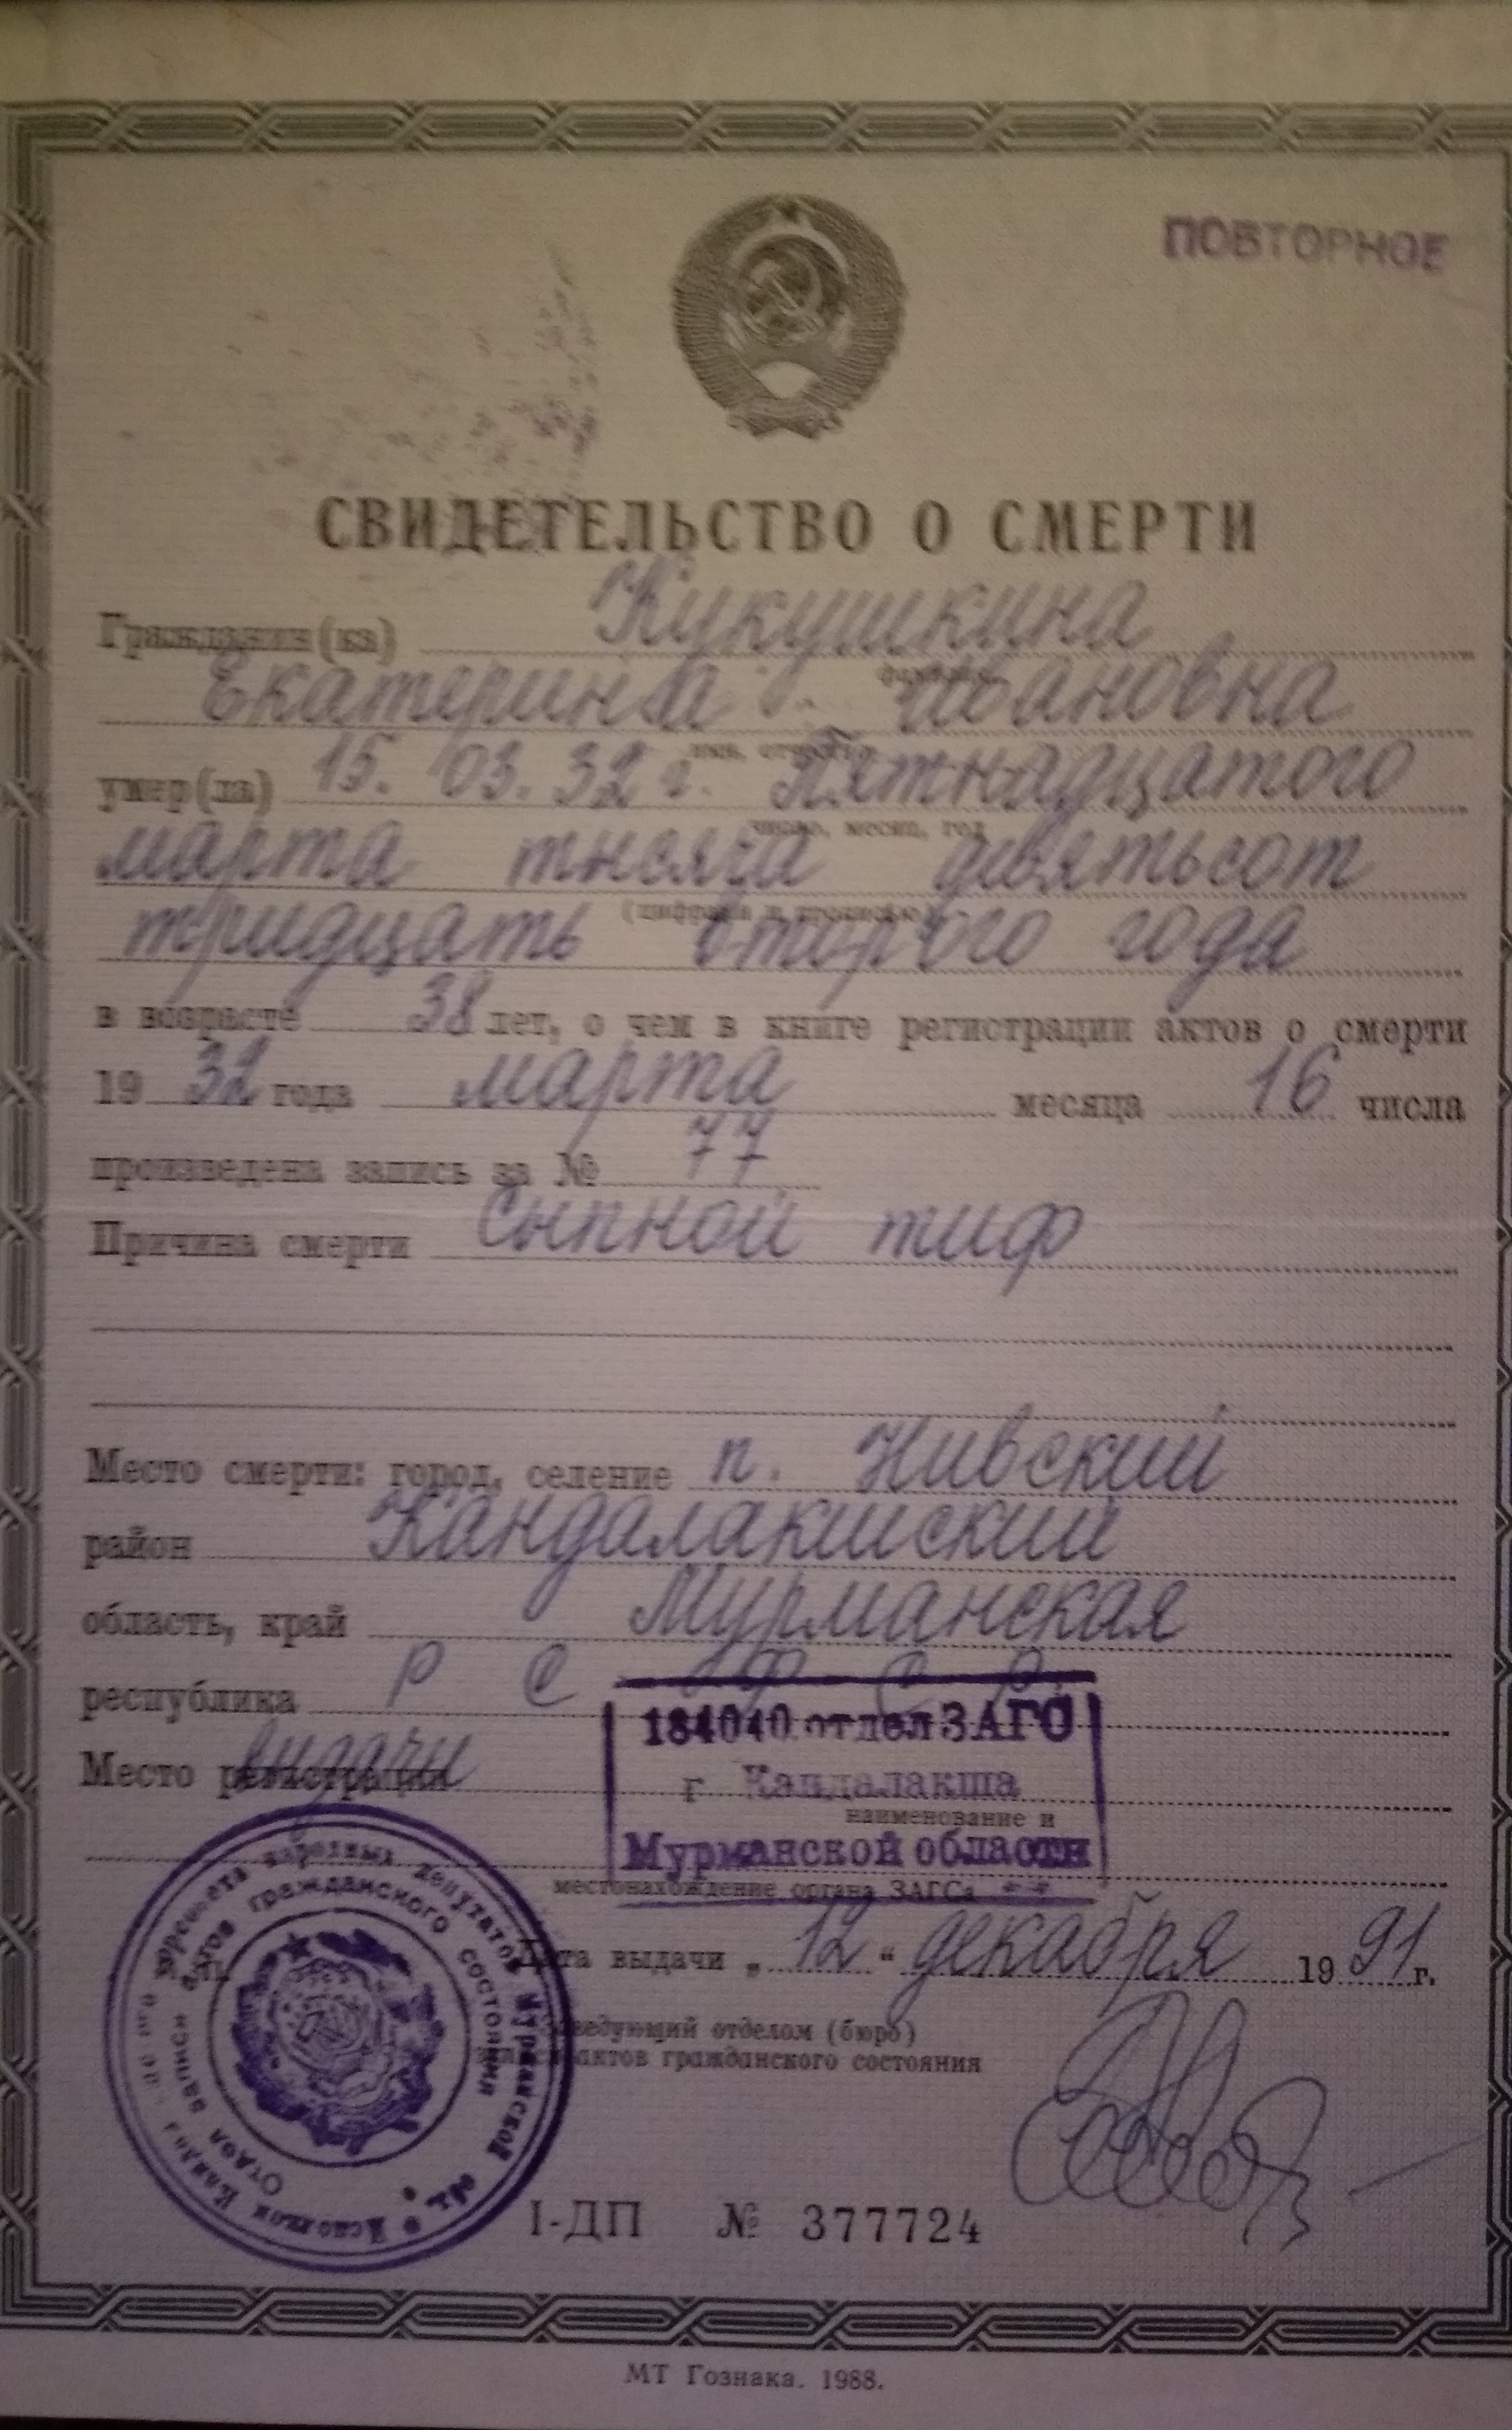 ПОВТОРНОЕ
СВИДЕТЕЛЬСТВО О СМЕРТИ
Гражданин(ка) Кукушкина
фамилия
Екатерина Ивановна
имя, отчество
умер(ла) 15. 03. 32 г. Пятнадцатого
число, месяц, год
марта тысяча девятьсот
(цифрами и прописью)
тридцать второго года
в возрасте 38 лет, о чем в книге регистрации актов о смерти
19 32 года марта месяца 16 числа
произведена запись за № 77
Причина смерти Сыпной тиф
Место смерти: город, селение п. Нивский
район Кандалакшский
область, край Мурманская
республика Р С Ф С Р.
184040 отдел ЗАГС
Место регистрации выдачи
г Кандалакша
наименование и
Мурманской области
местонахождение органа ЗАГСа
Дата выдачи „ 12 “ декабря 19 91 г.
Заведующий отделом (бюро)
актов гражданского состояния
народных депутатов Мурманской обл.
Отдел записи актов гражданского состояния
I-ДП № 377724
МТ Гознака. 1988.